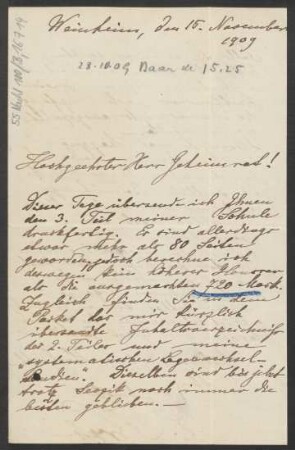 Weinheim, den 15. November
1909
Hochgeehrter Herr Geheimrat!
Dieser Tage übersende ich Ihnen
den 3. Teil meiner Schule
druckfertig. Es sind allerdings
etwas mehr als 80 Seiten
geworden, jedoch berechne ich
deswegen kein höheres Honorar
als die ausgemachten 720 Mark.
Zugleich finden Sie in dem
Paket der mir kürzlich
übersandte Inhaltsverzeichnis
der 2. Teiles und meine
systematischen Lagenwechsel-
Studien". Dieselben sind bis jetzt
trotz Sevcik noch immer die
besten geblieben.—